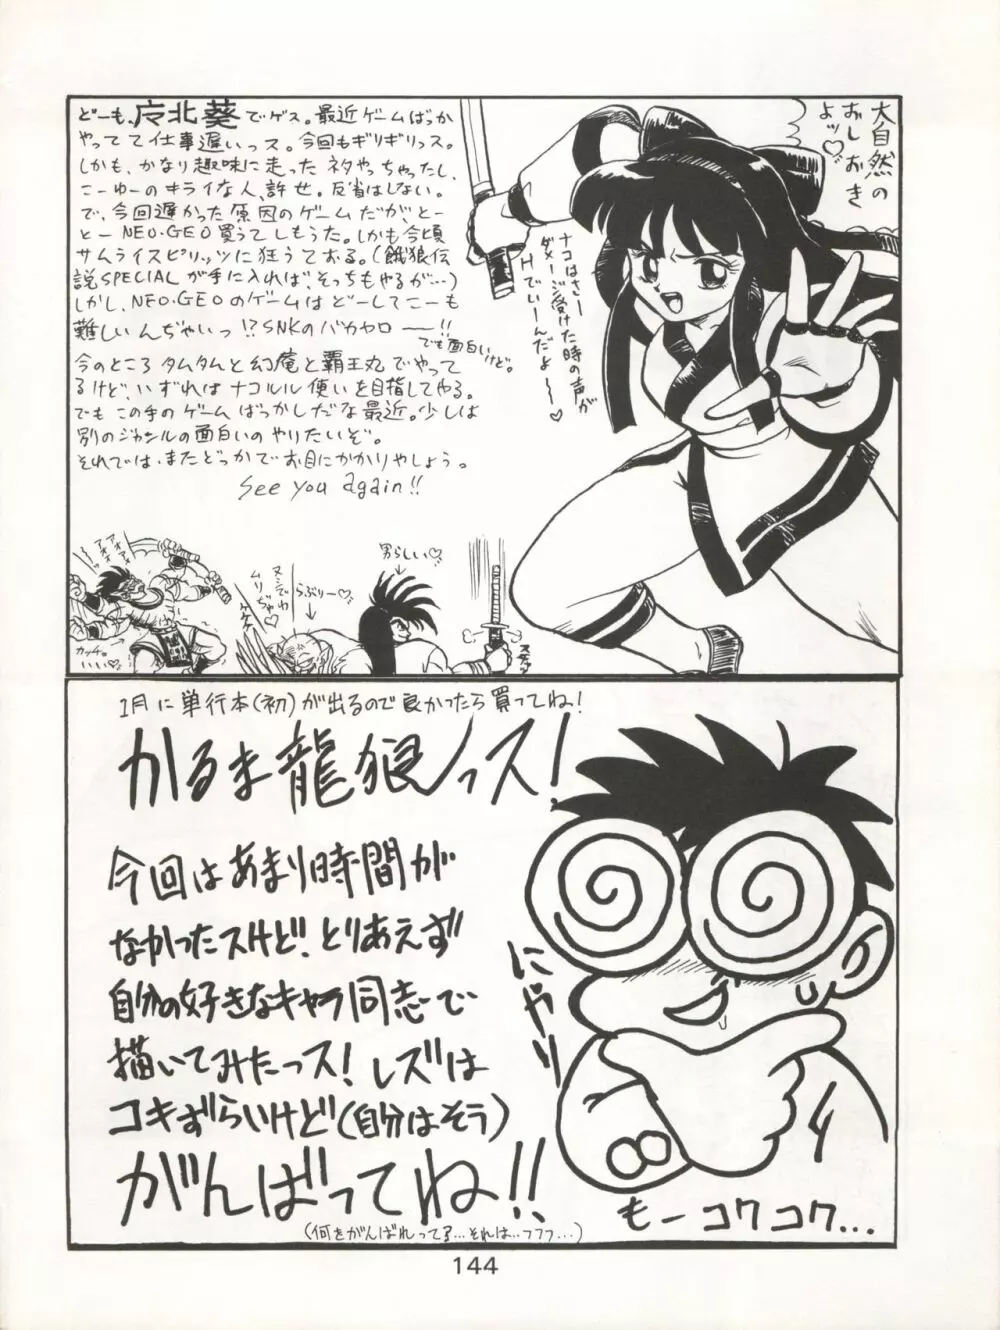 どーも、片北葵でゲス。最近ゲームばっか
やってて仕事遅いっス。今回もギリギリっス。
しかも、かなり趣味に走ったネタやっちゃったし、
こーゆーのキライな人、許せ。反省はしない。
で、今回遅かった原因のゲームだが、とー
とーNEO・GEO買うてしもうた。しかも今頃
サムライスピリッツに狂うておる。(餓狼伝
説SPECIALが手に入れば、そっちもやるが…)
しかし、NEO・GEOのゲームはどーしてこーも
難しいんぢゃいっ!?SNKのバカヤロ――!!
でも面白いけど。
今のところタムタムと幻庵と覇王丸でやって
るけど、いずれはナコルル使いを目指してやる。
でもこの手のゲームばっかしだな最近。少しは
別のジャンルの面白いのやりたいぞ。
それでは、またどっかでお目にかかりやしょう。
See you again!!
大自然の
おしおき
よッ♡
ナコはさー
ダメージ受けた時の声が
Hでいーんだよ〜♡
アオ アオ
カッチョ
いいい♡
ヌシでわ
ムリぢゃ♡
ケケ
らぶりー♡
男らしい♡
1月に単行本(初)が出るので良かったら買ってね!
かるま龍狼っス!
今回はあまり時間が
なかったスけど、とりあえず
自分の好きなキャラ同志で
描いてみたっス! レズは
コキずらいけど(自分はそう)
がんばってね!!
(何をがんばれって?…それは…フフフ…)
にやり
もーコワコワ...
144